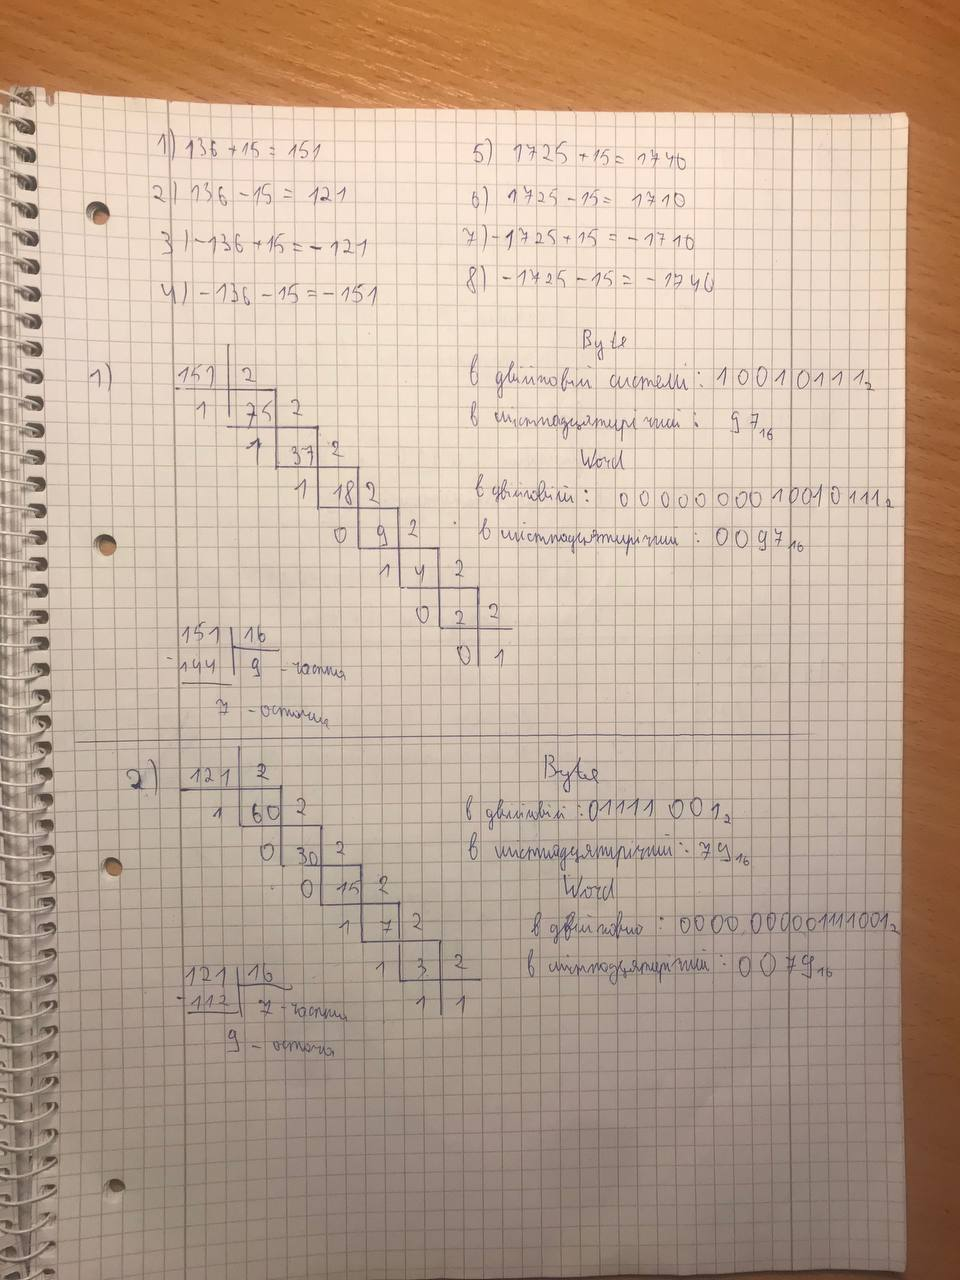 1) 136 + 15 = 151
2) 136 - 15 = 121
3) -136 + 15 = -121
4) -136 - 15 = -151
5) 1725 + 15 = 1740
6) 1725 - 15 = 1710
7) -1725 + 15 = -1710
8) -1725 - 15 = -1740
1)
151 2
1 75 2
1 37 2
1 18 2
0 9 2
1 4 2
0 2 2
0 1
151 16
-144 9 - частка
7 - остача
Byte
в двійковій системі: 10010111₂
в шістнадцятирічній: 97₁₆
Word
в двійковій: 0000000010010111₂
в шістнадцятирічній: 0097₁₆
2)
121 2
1 60 2
0 30 2
0 15 2
1 7 2
1 3 2
1 1
121 16
-112 7 - частка
9 - остача
Byte
в двійковій: 01111001₂
в шістнадцятирічній: 79₁₆
Word
в двійковю: 0000000001111001₂
в шістнадцятирічній: 0079₁₆